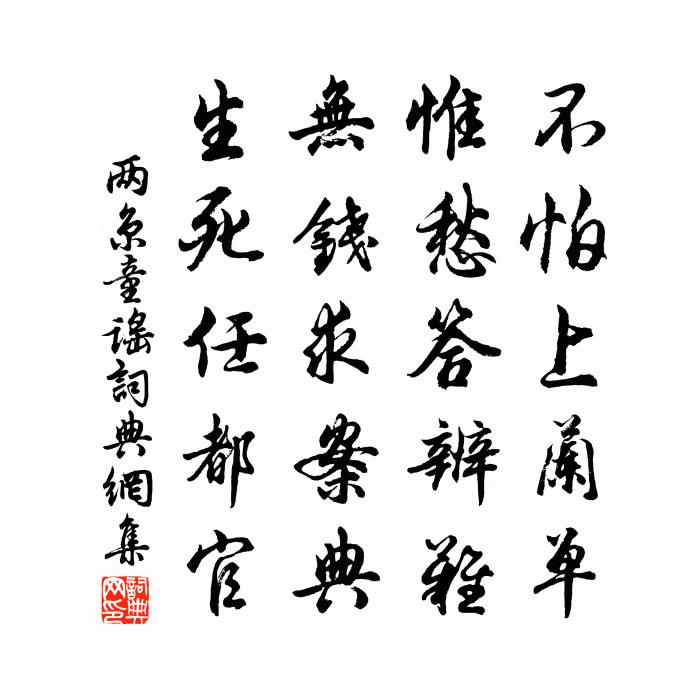 不怕上蘭单
惟愁答辨難
無錢求案典
生死任都官
两京童謡詞典網集
詞典网印